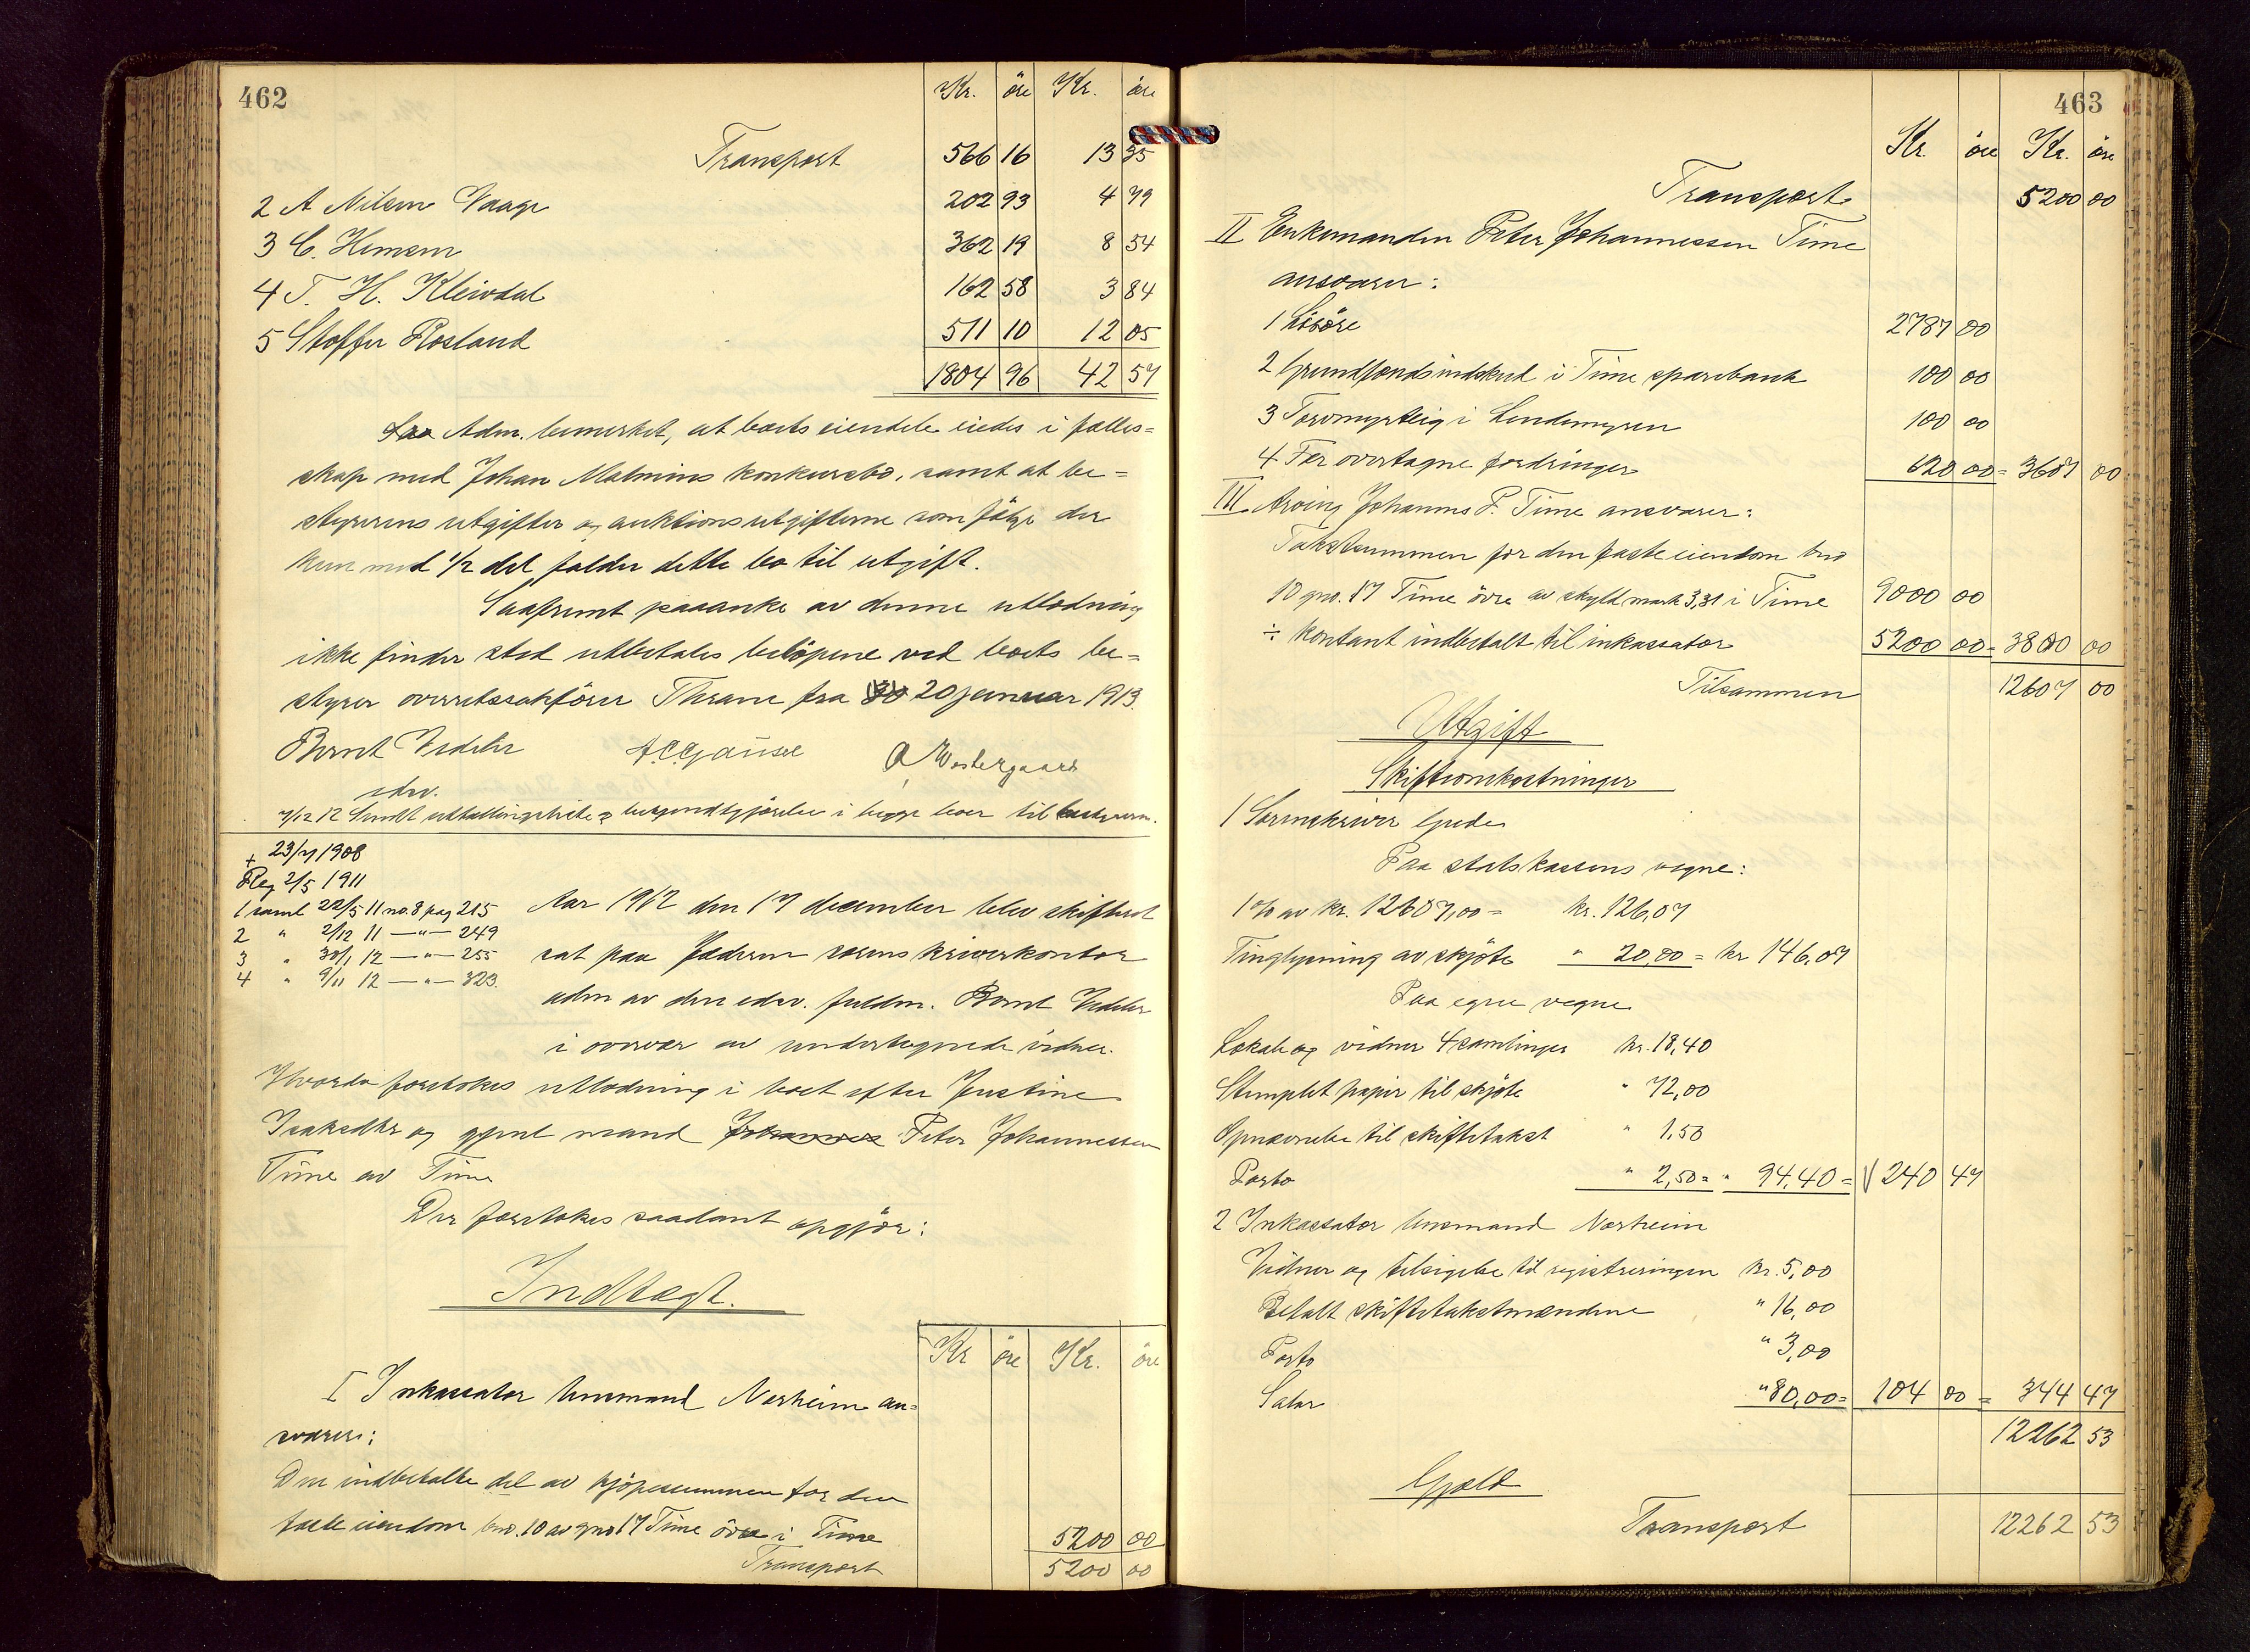 462
Kr. öre Kr. öre
Transport 566 16 13 35
2 A Nilsen Vaage 202 93 4 79
3 C. Hemsen 362 19 8 54
4 T. H. Kleivdal 162 58 3 84
5 Stoffer Rosland 511 10 12 05
1804 96 42 57
Adm. bemerket, at boets eiendele eiedes i fælles=
skap med Johan Malmins konkursbo, samt at be=
styrerens utgifter og auktionsutgifterne som følge der
kun med 1/2 del falder dette bo til utgift.
Saafremt paaanke av denne utlodning
ikke finder sted utbetales beløpene ved boets be=
styrer overretssakfører Thrane fra 20 januar 1913.
Bernt Vedeler A.C. Gausel O Westergaard
edsv.
7/12 12 Sendt utdelingsliste og bekjendtgjørelse i begge boer til bestyreren.
+ 23/7 1908
Reg 2/5 1911
1 saml 22/5 11 no. 8 pag 215
2 " 2/12 11 — " — 249
3 " 30/1 12 — " — 255
4 " 9/11 12 — " — 323.
Aar 1912 den 17 december blev skifteret
sat paa Jæderen sorenskriverkontor
adm av den edsv. fuldm. Bernt Vedeler
i overvær av undertegnede vidner.
Hvorda foretokes utlodning i boet efter Justine
Isaksdtr og gjenl mand Johannes Peter Johannessen
Time av Time
Der foretokes saadant opgjør:
Indtægt.
Kr öre Kr. öre
I Inkassator Lensmand Norheim an=
svarer:
Den indbetalte del av kjøpesummen for den
faste eiendom bno. 10 av gno 17 Time øvre i Time 5200 00
Transport 5200 00
463
Kr. öre Kr. öre
Transport 5200 00
II Enkemanden Peter Johannessen Time
ansvarer:
1 Løsøre 2787 00
2 Grundfondsindskud i Time sparebank 100 00
3 Torvmyrteig i Lendemyren 100 00
4 For overtagne fordringer 620 00 = 3607 00
III Arving Johannes P. Time ansvarer:
Takstsummen for den faste eiendom bno
10 gno. 17 Time øvre av skyld mark 3,31 i Time 9000 00
÷ kontant indbetalt til inkassator 5200 00 = 3800 00
Tilsammen 12607 00
Utgift
Skifteomkostninger
1 Sorenskriver Gjede
Paa statskassens vegne:
1 % av kr. 12607,00 = kr. 126,07
Tinglysning av skjøte " 20,00 = kr 146,07
Paa egne vegne
Lokale og vidner 4 samlinger kr. 18,40
Stemplet papir til skjøte " 72,00
Opnævnelse til skiftetakst " 1,50
Porto " 2,50 = " 94,40 = 240 47
2 Inkassator lensmand Norheim
Vidner og tilsigelse til registreringen kr. 5,00
Betalt skiftetakstmændene " 16,00
Porto " 3,00
Salær " 80,00 = 104 00 = 344 47
12262 53
Gjæld
Transport 12262 53